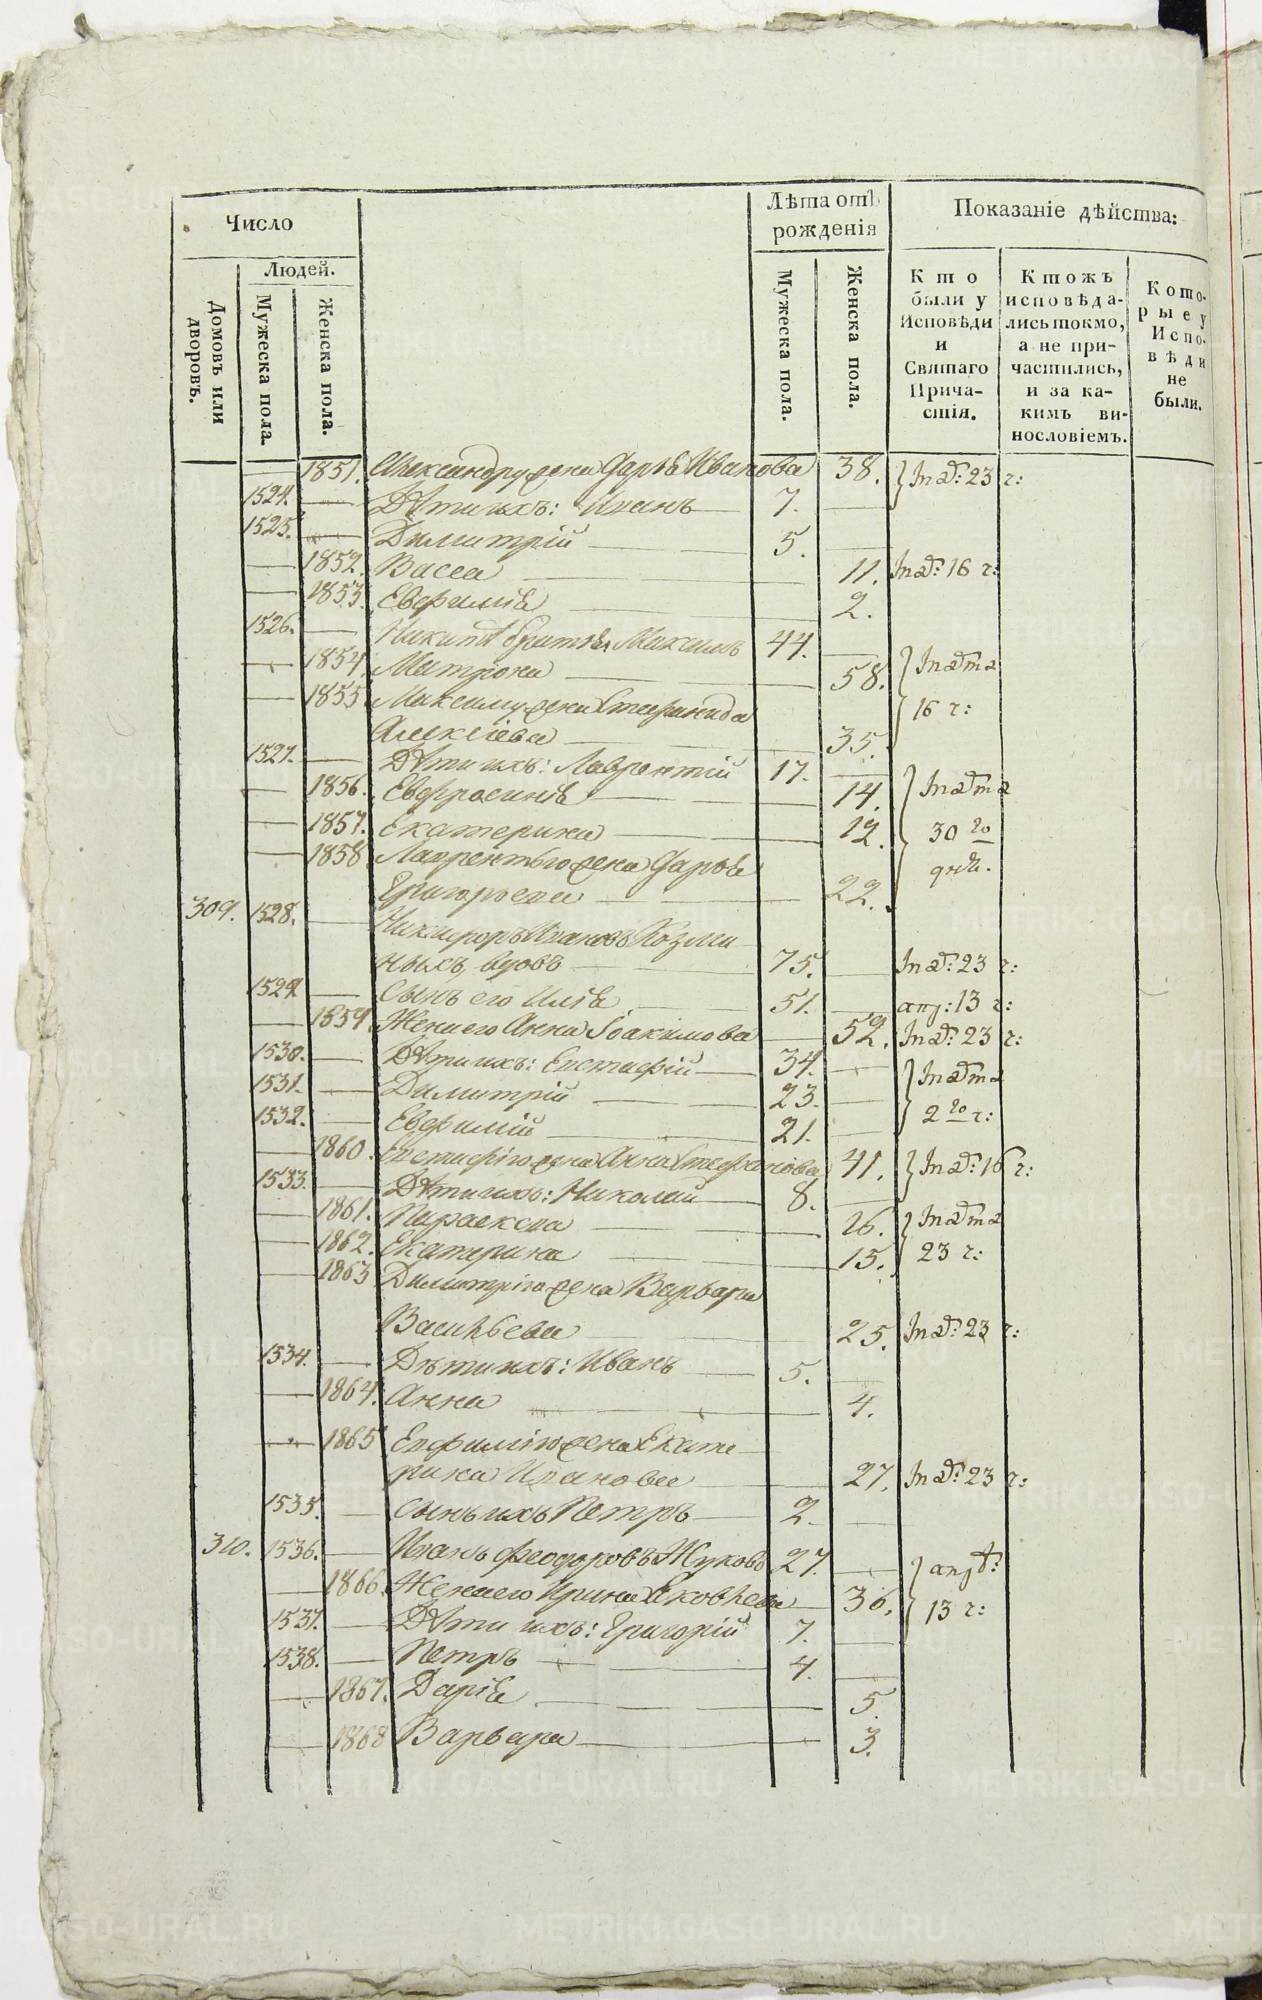 Число
Людей.
Домовъ или дворовъ.
Мужеска пола.
Женска пола.
Лѣта отъ рожденія
Мужеска пола.
Женска пола.
Показаніе дѣйства:
Кто были у Исповѣди и Святаго Причастія.
Ктожъ исповѣдались токмо, а не причастились, и за какимъ винословіемъ.
Которые у Исповѣди не были.
1851. Александру жена Дарья Иванова 38. Іюл: 23 г:
1524. Дѣти ихъ: Иванъ 7.
1525. Димитрій 5.
1852. Васса 11. 16 г:
1853. Евфимія 2.
1526. братья Максимъ 44.
1854. Матрона 58.
1855 Максиму жена Стефанида 16 г:
Алексіева 35.
1527. Дѣти ихъ: Лаврентій 17.
1856. Евфросинія 14.
1857. Екатерина 12. 30 го
1858 Лаврентью жена Дарья
Григорьева 22.
309. 1528. Никифоръ Ивановъ Козми
ныхъ, вдовъ 75. 23 г:
1529 сынъ его Илія 51. апр: 13 г:
1859 Жена его Анна Іоакимова 52. 23 г:
1530. Дѣти ихъ: Евстафій 34.
1531. Димитрій 23.
1532. Евфимій 21. 2 го г:
1860. Евстафію жена Анна Стефанова 41. 16 г:
1533. Дѣти ихъ: Николай 8.
1861. Параскева 16.
1862. Екатерина 15. 23 г:
1863 Димитрію жена Варвара
Васильева 25. 23 г:
1534. Дѣти ихъ: Иванъ 5.
1864. Анна 4.
1865 Евфимію жена Екате
рина Иванова 27. 23 г:
1535. сынъ ихъ Петръ 2.
310. 1536. Иванъ Феодоровъ Жуковъ 27.
1866. Жена его Ирина Яковлева 36. 13 г:
1537. Дѣти ихъ: Григорій 7.
1538. Петръ 4.
1867. Дарія 5.
1868 Варвара 3.